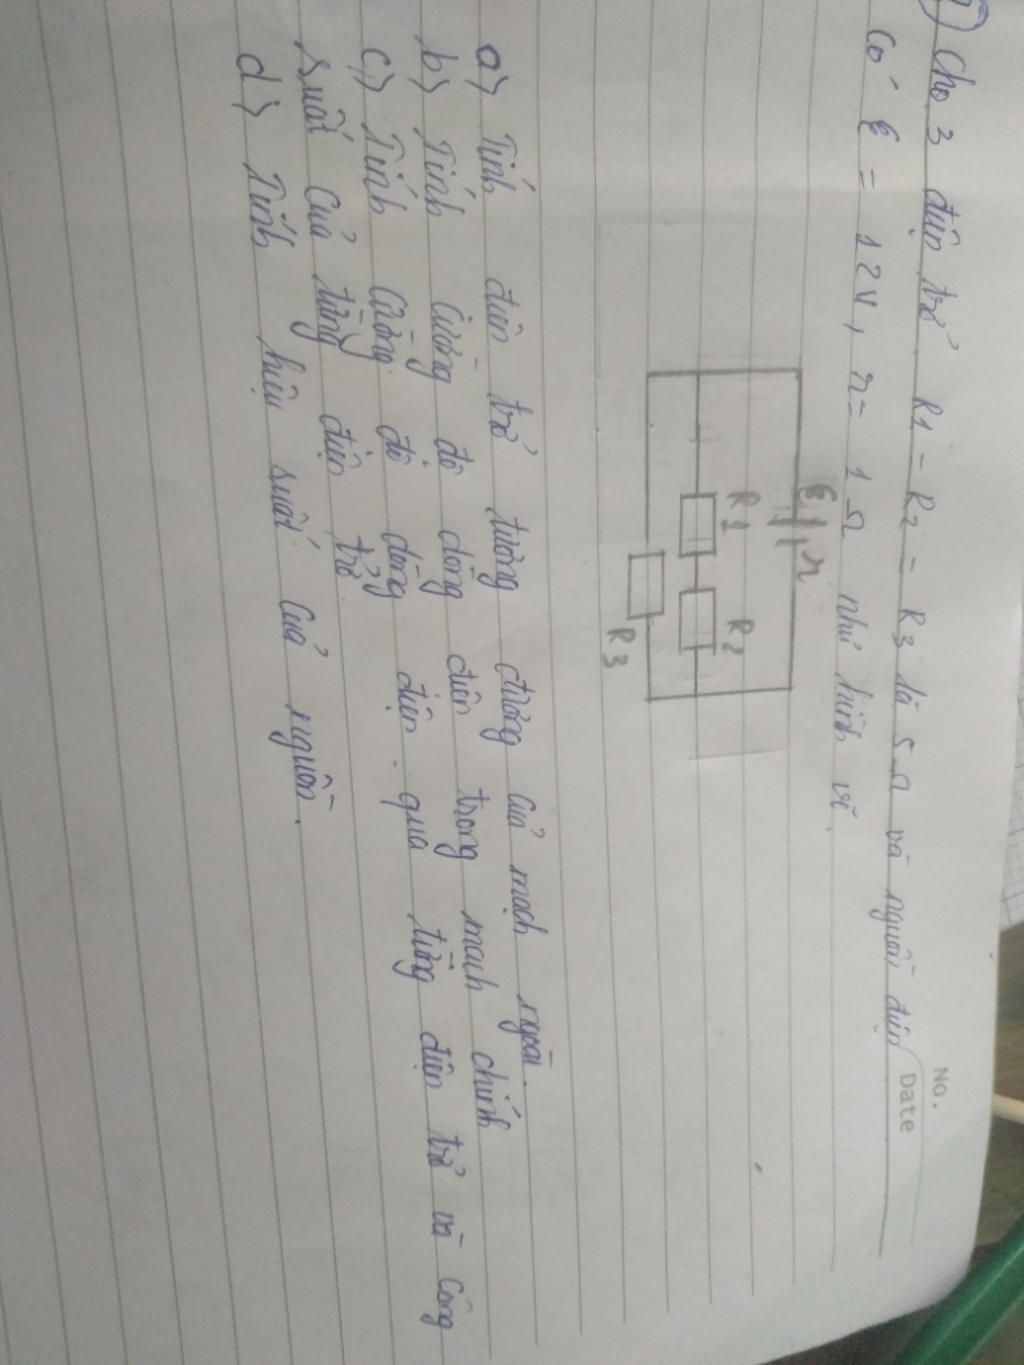 No.
Date
Cho 3 điện trở R1 = R2 = R3 là 5Ω và nguồn điện
Có ℰ = 12V, r = 1Ω như hình vẽ
ℰ r
R1 R2
R3
a) Tính điện trở tương đương của mạch ngoài.
b) Tính cường độ dòng điện trong mạch chính
c) Tính cường độ dòng điện qua từng điện trở và công
suất của từng điện trở.
d) Tính hiệu suất của nguồn.